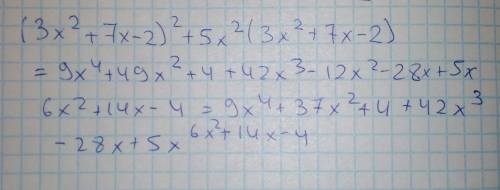 (3x²+7x-2)²+5x²(3x²+7x-2)
=9x⁴+49x²+4+42x³-12x²-28x+5x
6x²+14x-4=9x⁴+37x²+4+42x³
-28x+5x^6x²+14x-4